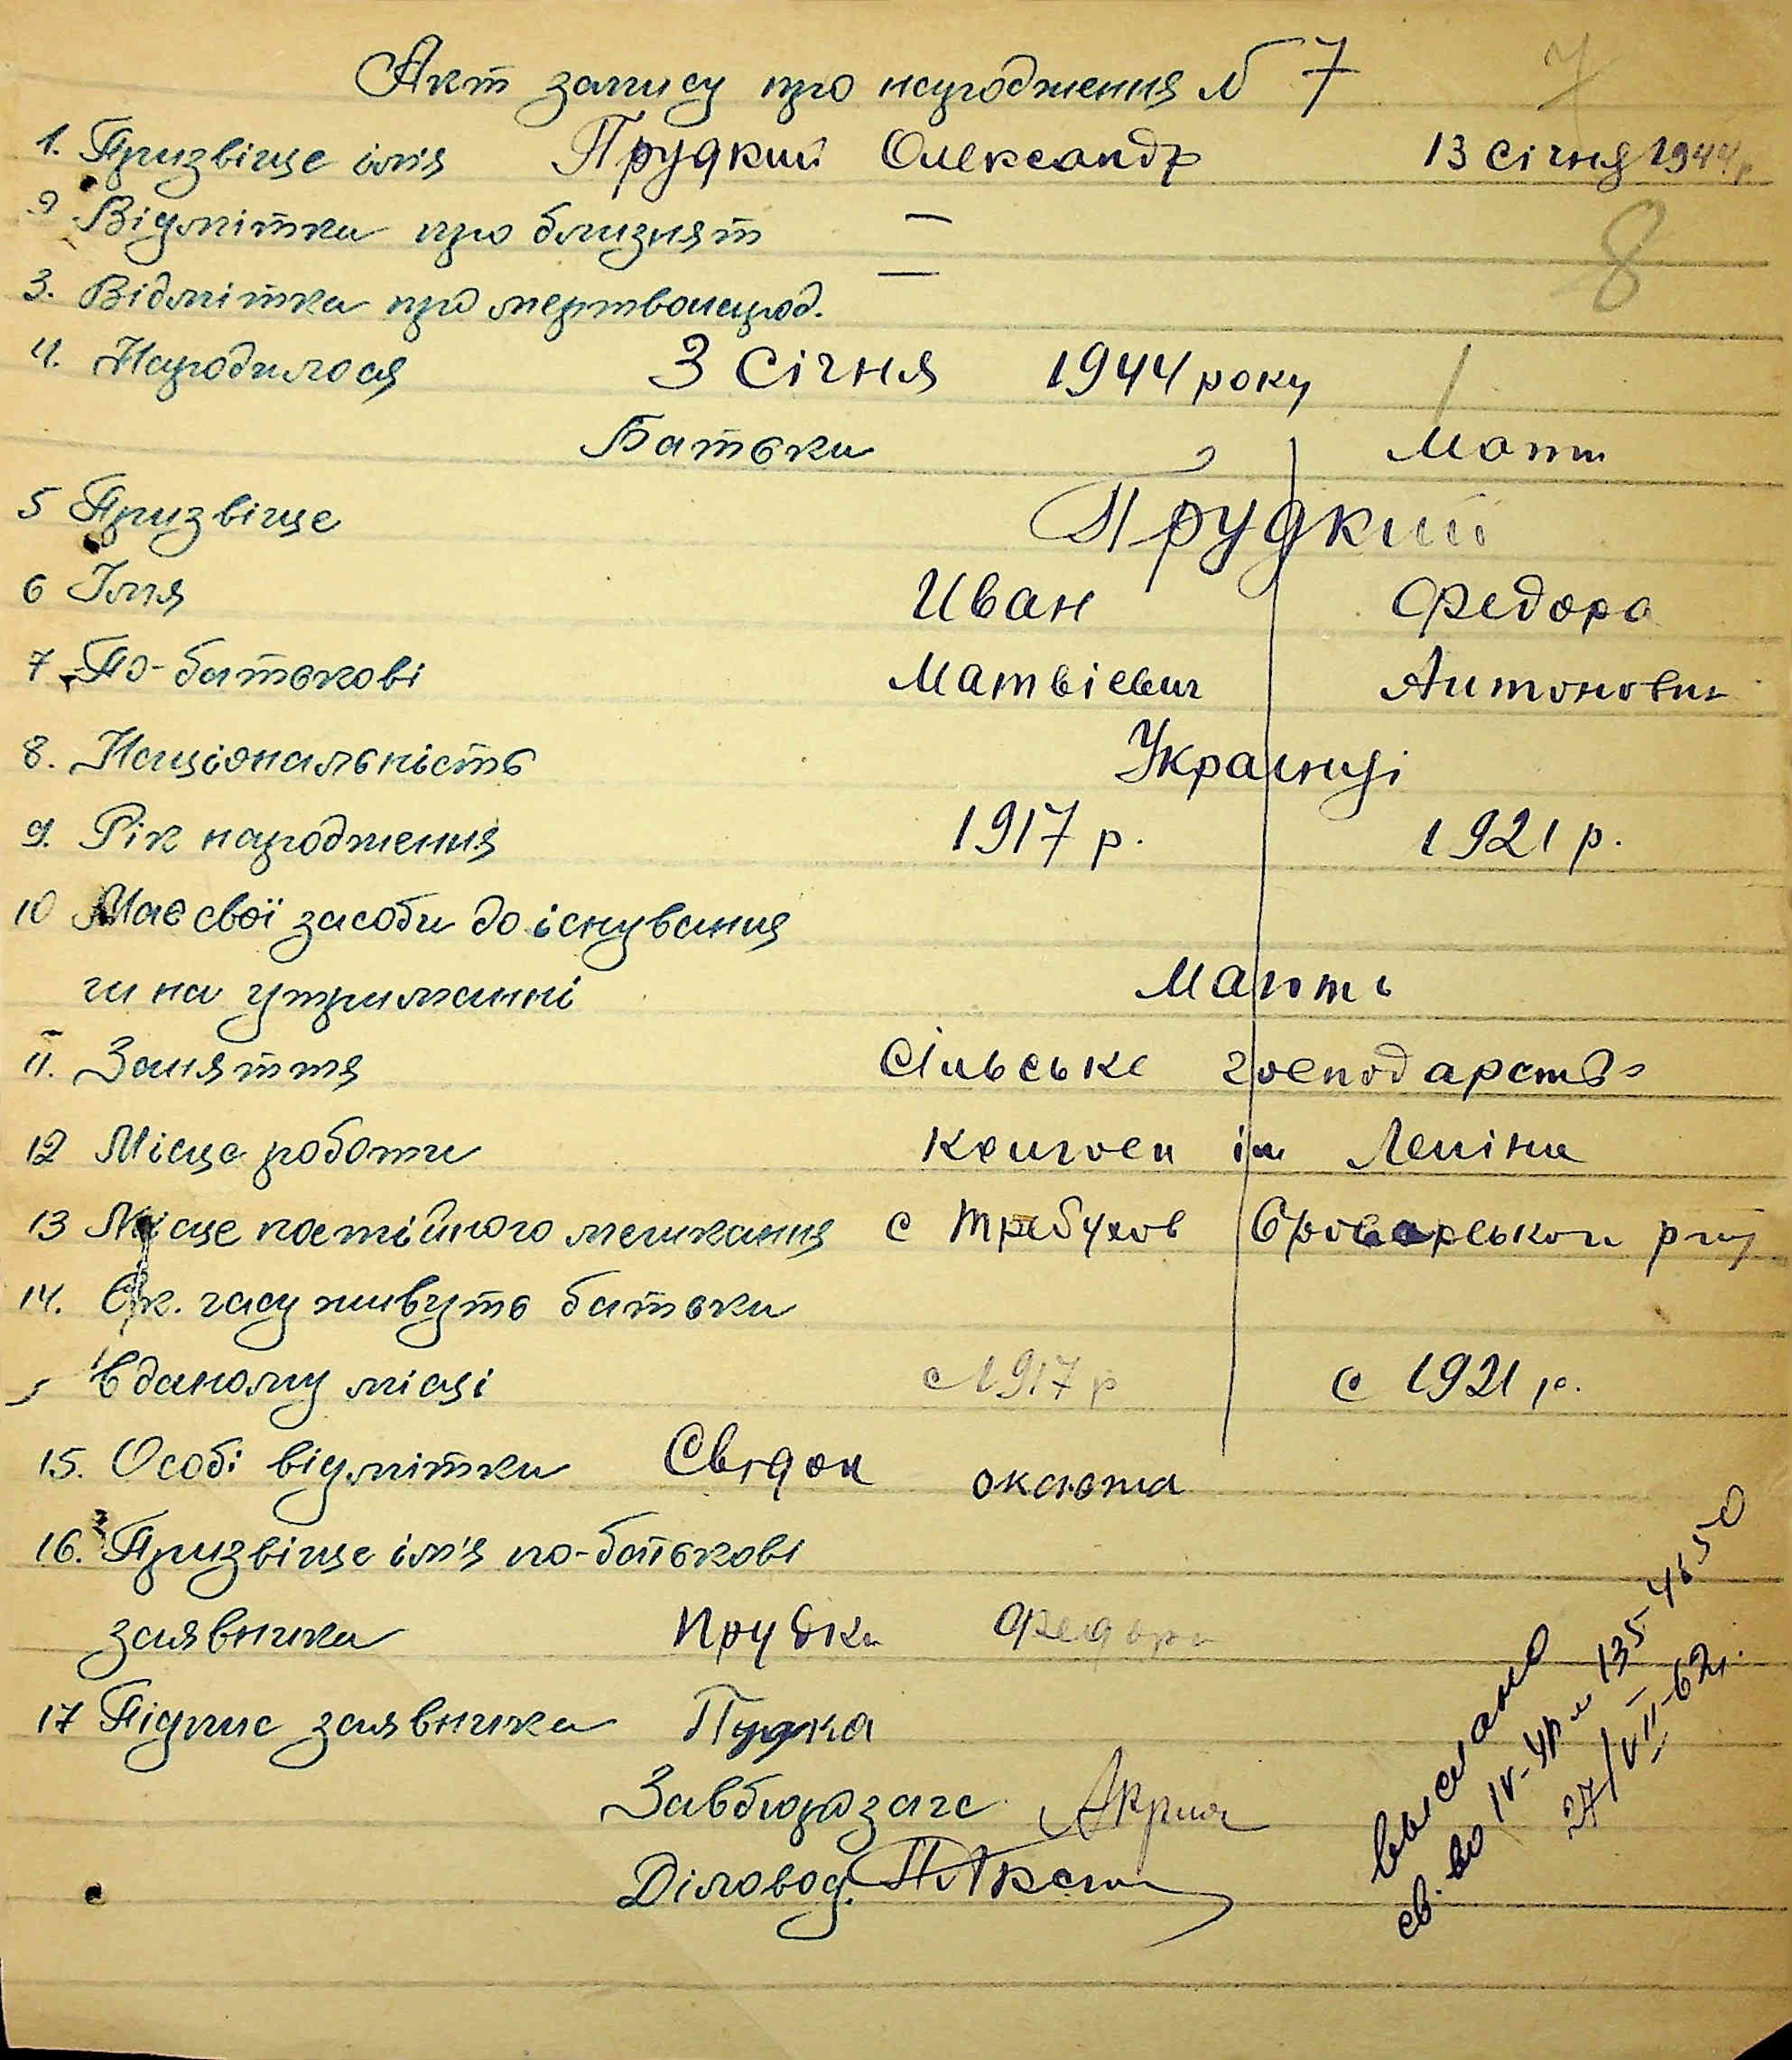 Акт запису про народження № 7 7
1. Призвіще ім'я Прудкий Олександр 13 січня 1944 р
2. Відмітка про близнят —
8
3. Відмітка про мертвонарод. —
4. Народилося 3 Січня 1944 року
Батьки Мати
5 Призвіще Прудкий
6 Імя Иван Федора
7 По-батькові Матвієвич Антоновн
8. Національність Украинці
9. Рік народження 1917 р. 1921 р.
10 Має свої засоби до існування
чи на утриманні Мають
11. Заняття Сільське господарство
12 Місце роботи Колгосп ім Леніна
13 Місце постійного мешкання с Требухов Броварьского р-ну
14. Ск. часу живуть батьки
в даному місці с 1917 р с 1921 р.
15. Особі відмітки Свідок
16. Призвіще ім'я по-батькові
заявника Прудка Федора
17 Підпис заявника
Завбюро загс
Діловод.
выслано
св. во IV-УР № 135
27/VII-62г.